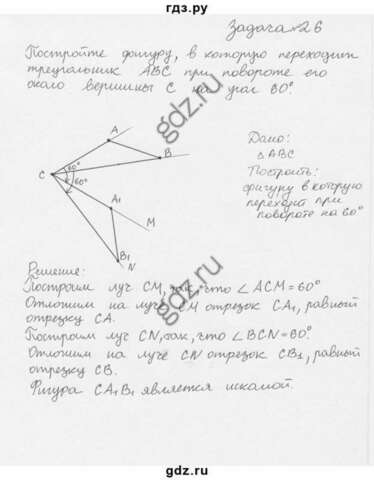 гдз.ру
Задача №26
Постройте фигуру, в которую переходит
треугольник АВС при повороте его
около вершины С на угол 60°.
A
B
C
60°
60°
A₁
M
B₁
N
Дано:
△ АВС
Построить:
фигуру в которую
переходит при
повороте на 60°
Решение:
Построим луч СМ, так, что ∠АСМ=60°
Отложим на луче СМ отрезок СА₁, равный
отрезку СА.
Построим луч СN, так, что ∠BCN=60°.
Отложим на луче CN отрезок СВ₁, равный
отрезку СВ.
Фигура СА₁В₁ является искомой.
gdz.ru
gdz.ru
gdz.ru
gdz.ru
gdz.ru